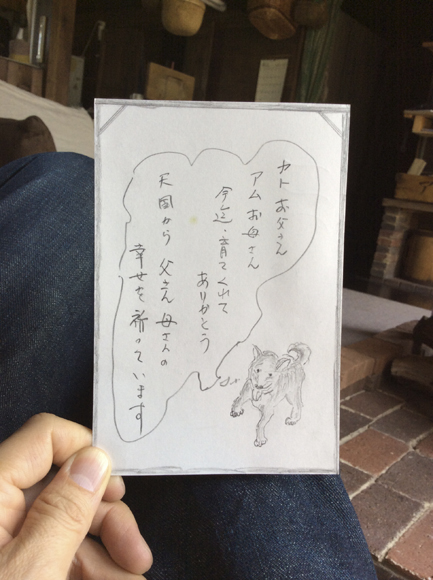 カトお父さん
アムお母さん
今迄・育てくれて
ありがとう
天国から 父さん 母さんの
幸せを祈っています